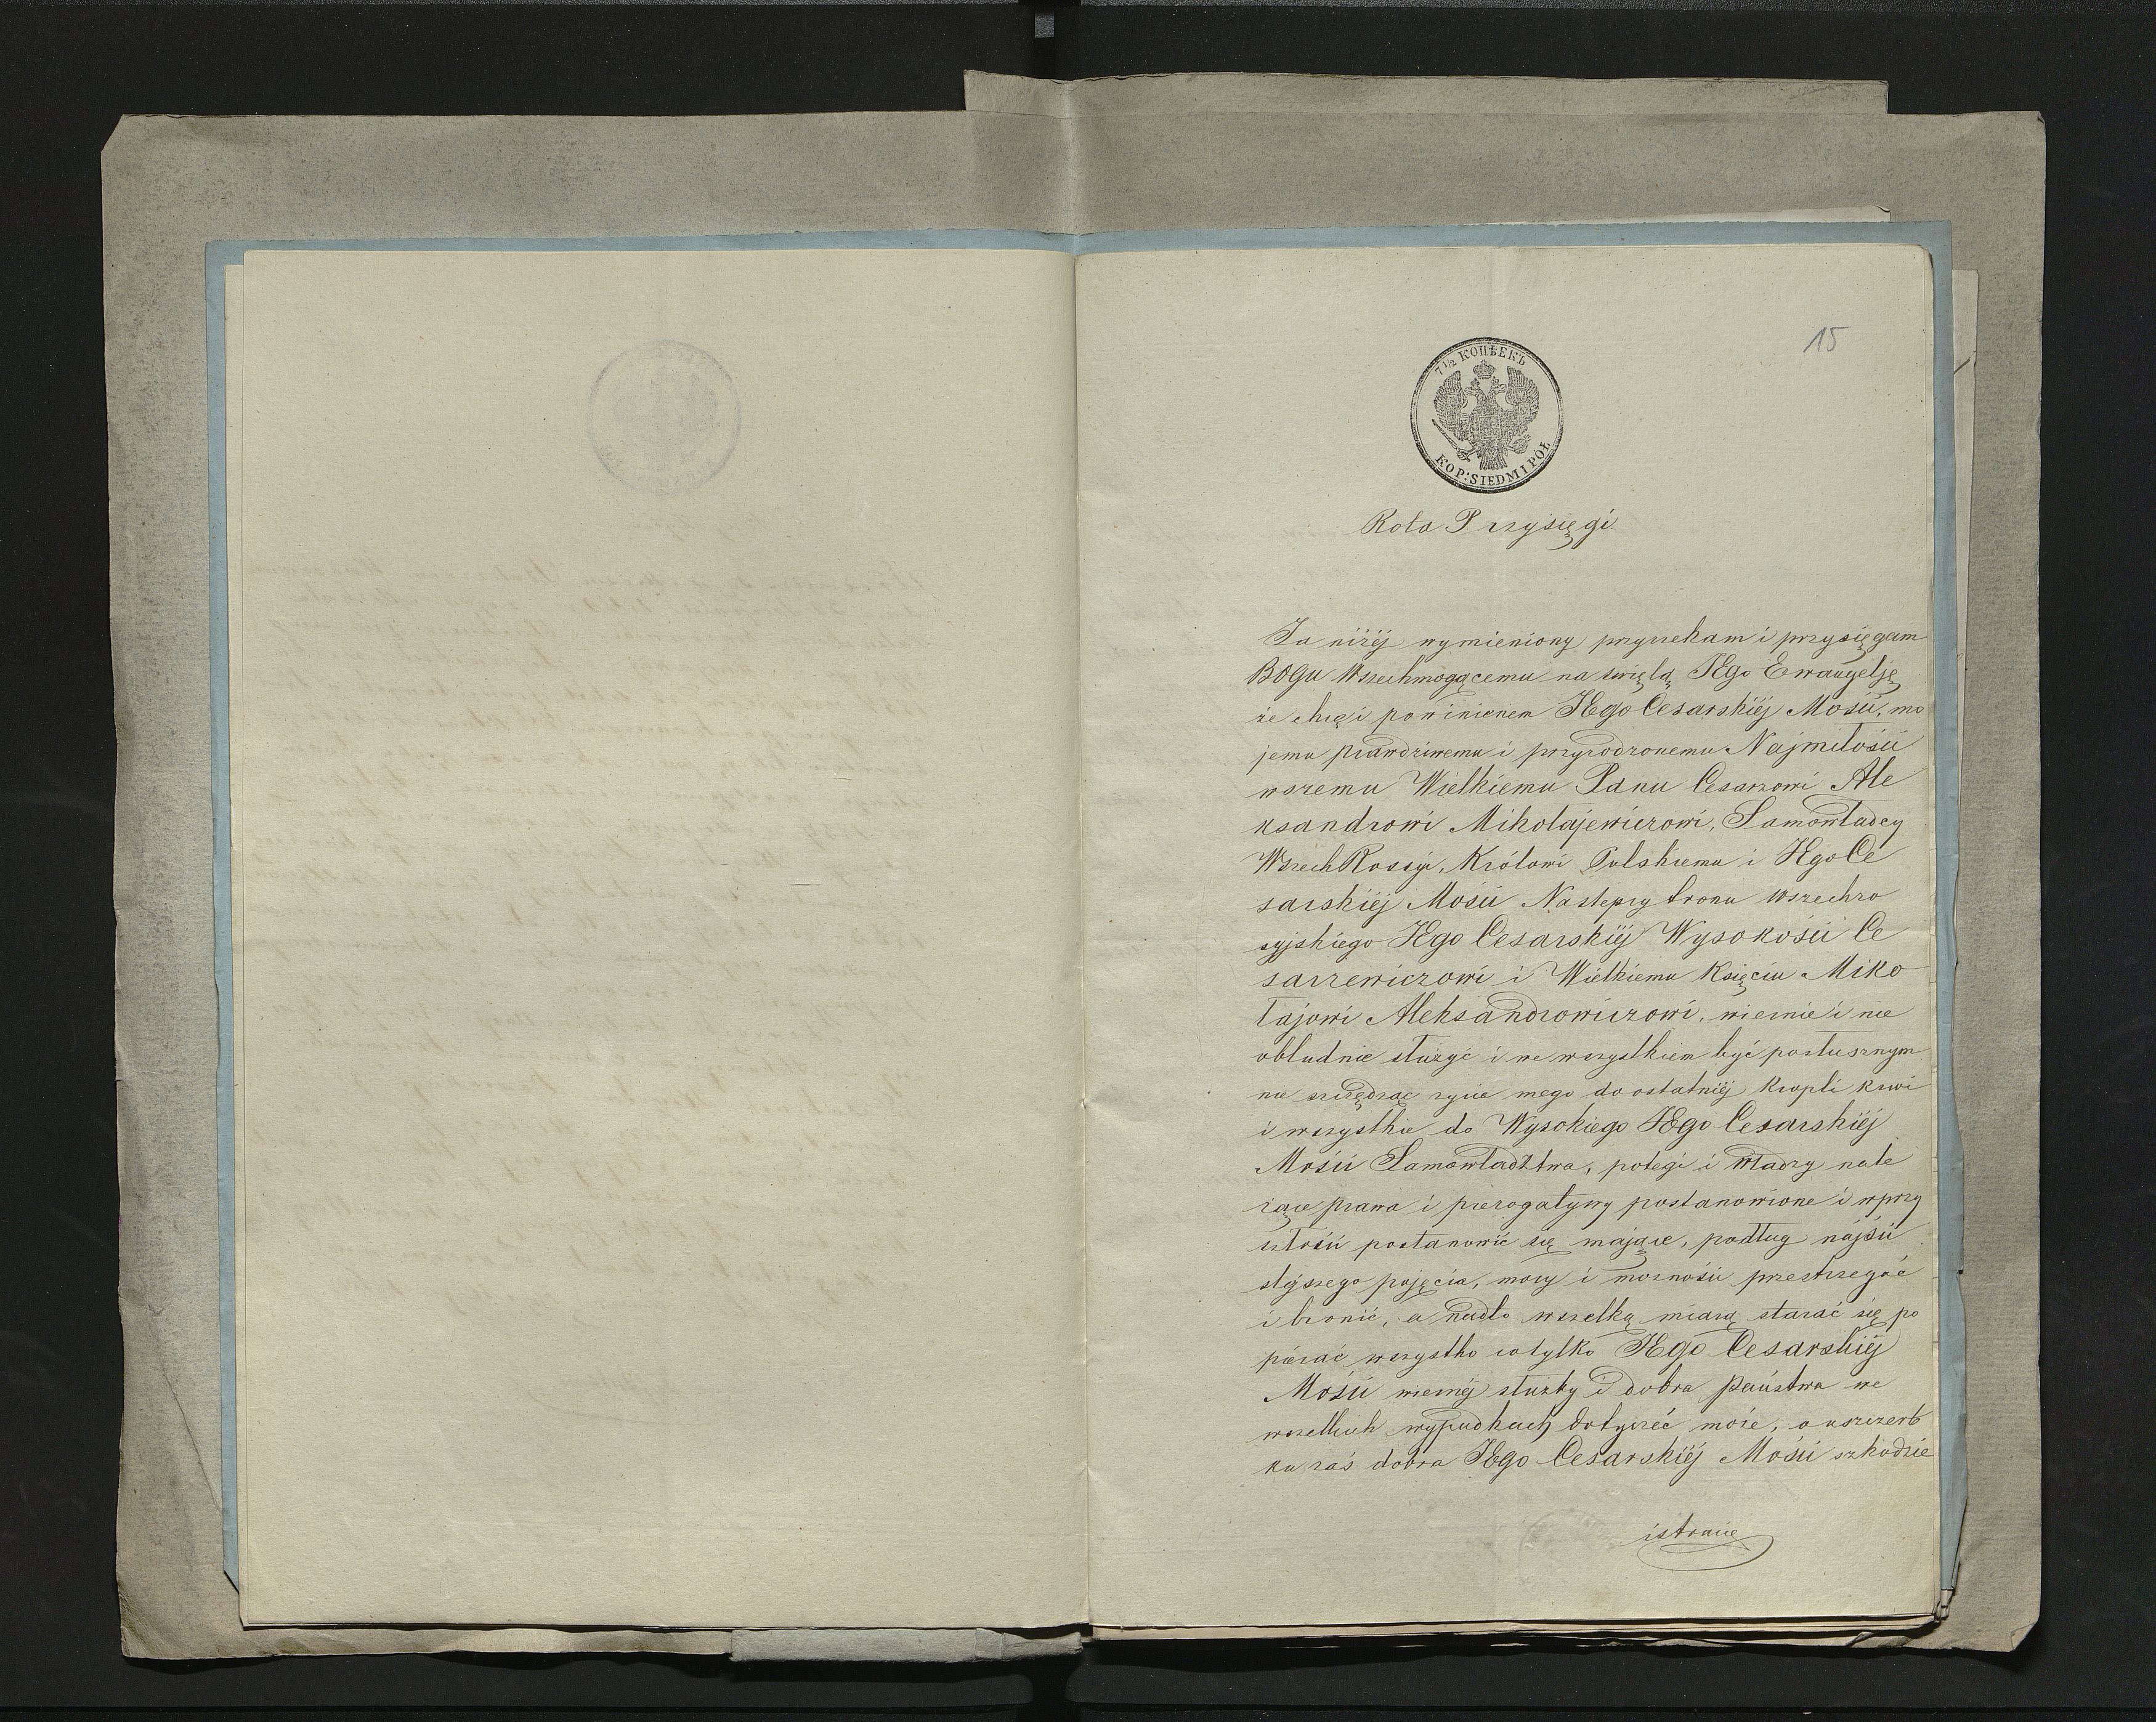 15
7½ КОПѢЕКЪ
KOP: SIEDM I PÓŁ
Rota Przysięgi
Ja niżéj wymieniony przyrzekam i przysięgam
BOGU Wszechmogącemu na świętą JEgo Ewangelję
że chcę i powinienem JEgo Cesarskiéj Mości, mo
jemu prawdziwemu i przyrodzonemu Najmiłości
wszemu Wielkiemu Panu Cesarzowi Ale
ksandrowi Mikołajewiczowi, Samowładcy
WszechRossyi, Królowi Polskiemu i JEgo Ce
sarskiéj Mości Następcy tronu wszechro
syjskiego JEgo Cesarskiéj Wysokości Ce
sarzewiczowi i Wielkiemu Księciu Miko
łajowi Aleksandrowiczowi, wiernie i nie
obłudnie służyć i we wszystkiem być posłusznym
nie szczędząc życia mego do ostatniéj kropli krwi
i wszystkie do Wysokiego JEgo Cesarskiéj
Mości Samowładztwa, potęgi i władzy nale
żące prawa i prerogatywy postanowione i wprzy
szłości postanowić się mające, podług najści
ślejszego pojęcia, mocy i możności przestrzegać
i bronić, a nadto wszelką miarą starać się po
pierać wszystko cotylko JEgo Cesarskiéj
Mości wiernéj służby i dobra państwa we
wszelkich wypadkach dotyczeć może, o uszczerb
ku zaś dobra JEgo Cesarskiéj Mości szkodzie
istracie